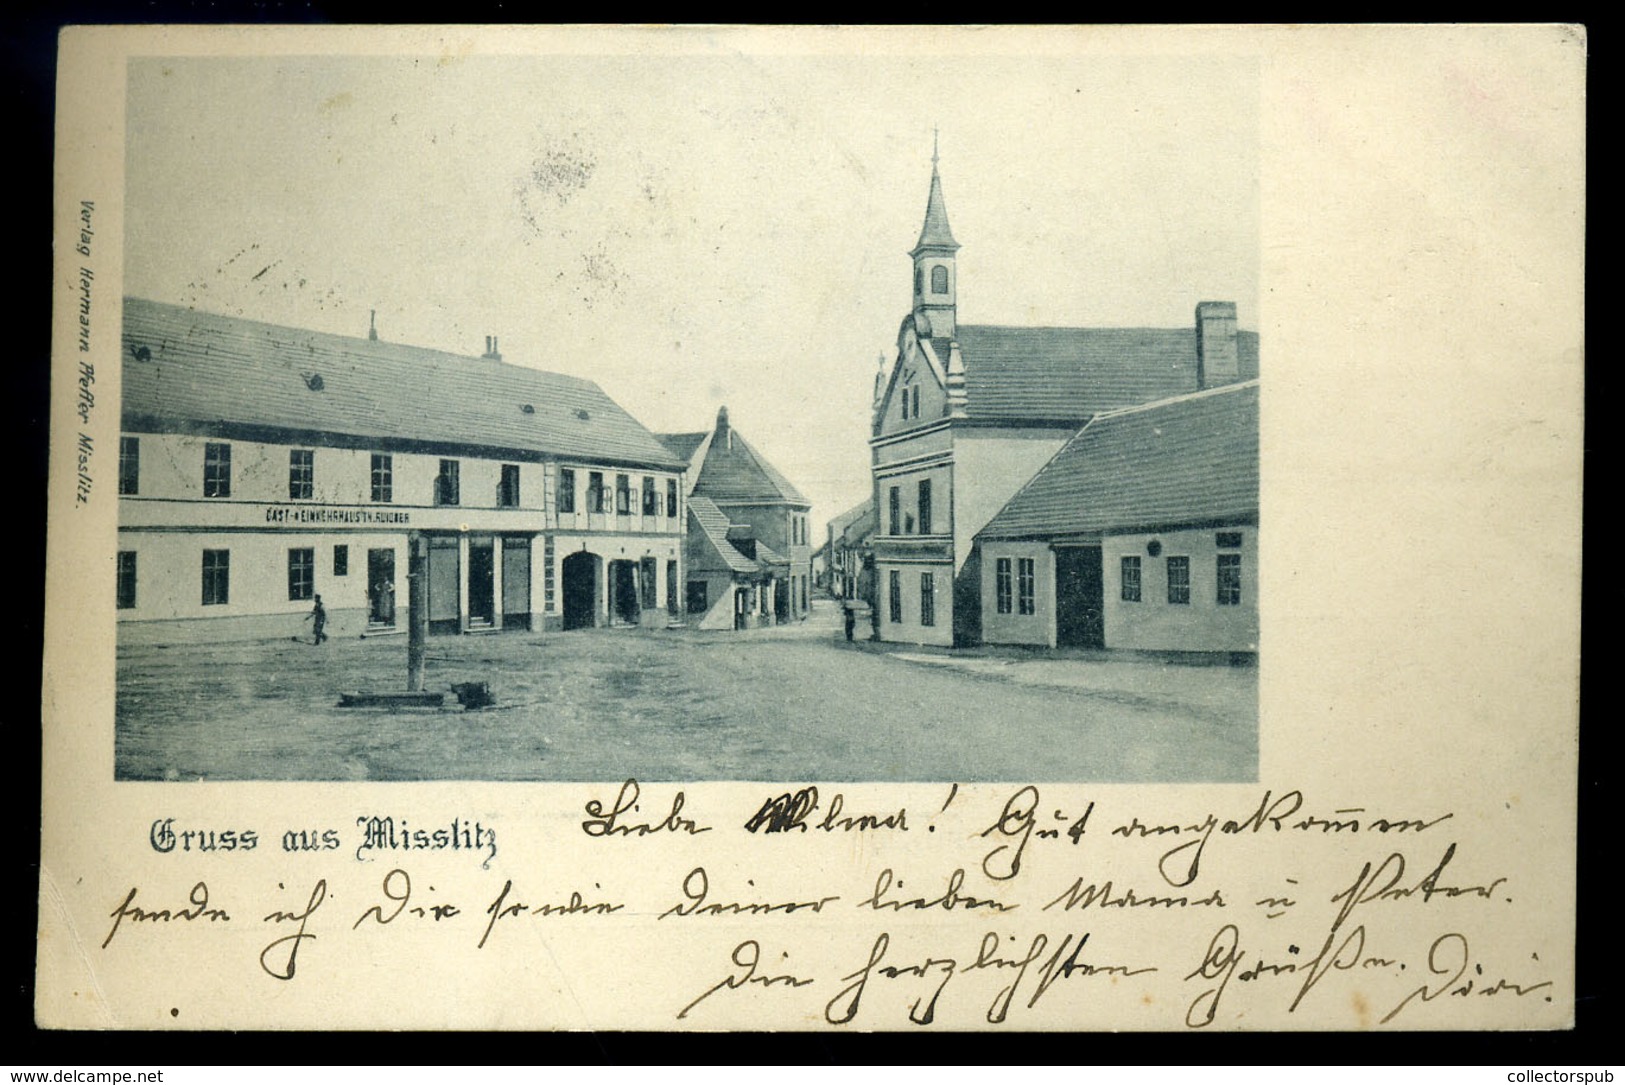 Verlag Hermann Pfeffer Misslitz.
GAST- & EINKEHRHAUS TH.
Gruss aus Misslitz
Liebe Wilma! Gut angekom̄en
sende ich Dir sowie Deiner lieben Mama u Peter.
Die herzlichsten Grüße. Dori.
www.delcampe.net
collectorspub